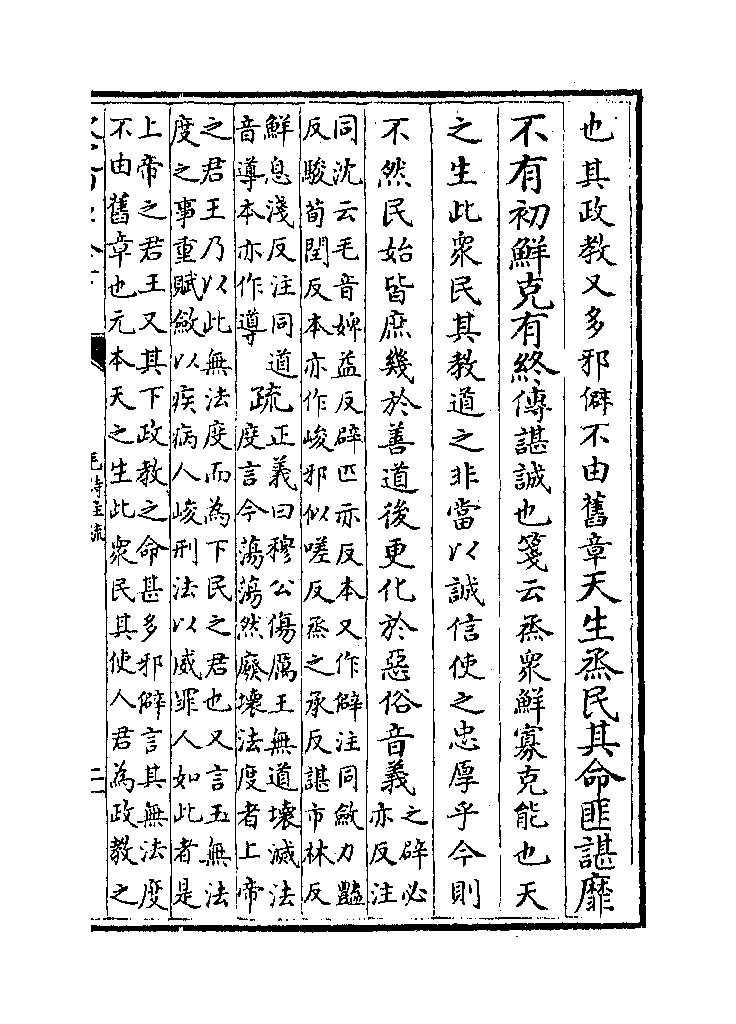 也其政教又多邪僻不由舊章天生烝民其命匪諶靡
不有初鮮克有終傳諶誠也箋云烝衆鮮寡克能也天
之生此衆民其教道之非當以誠信使之忠厚乎今則
不然民始皆庶幾於善道後更化於惡俗音義之辟必
亦反注
同沈云毛音婢益反辟匹亦反本又作僻注同斂力豔
反駿荀閏反本亦作峻邪似嗟反烝之承反諶市林反
鮮息淺反注同道
音導本亦作導
疏正義曰穆公傷厲王無道壞滅法
度言今蕩蕩然廢壞法度者上帝
之君王乃以此無法度而為下民之君也又言王無法
度之事重賦斂以疾病人峻刑法以威罪人如此者是
上帝之君王又其下政教之命甚多邪僻言其無法度
不由舊章也元本天之生此衆民其使人君為政教之
毛詩注疏